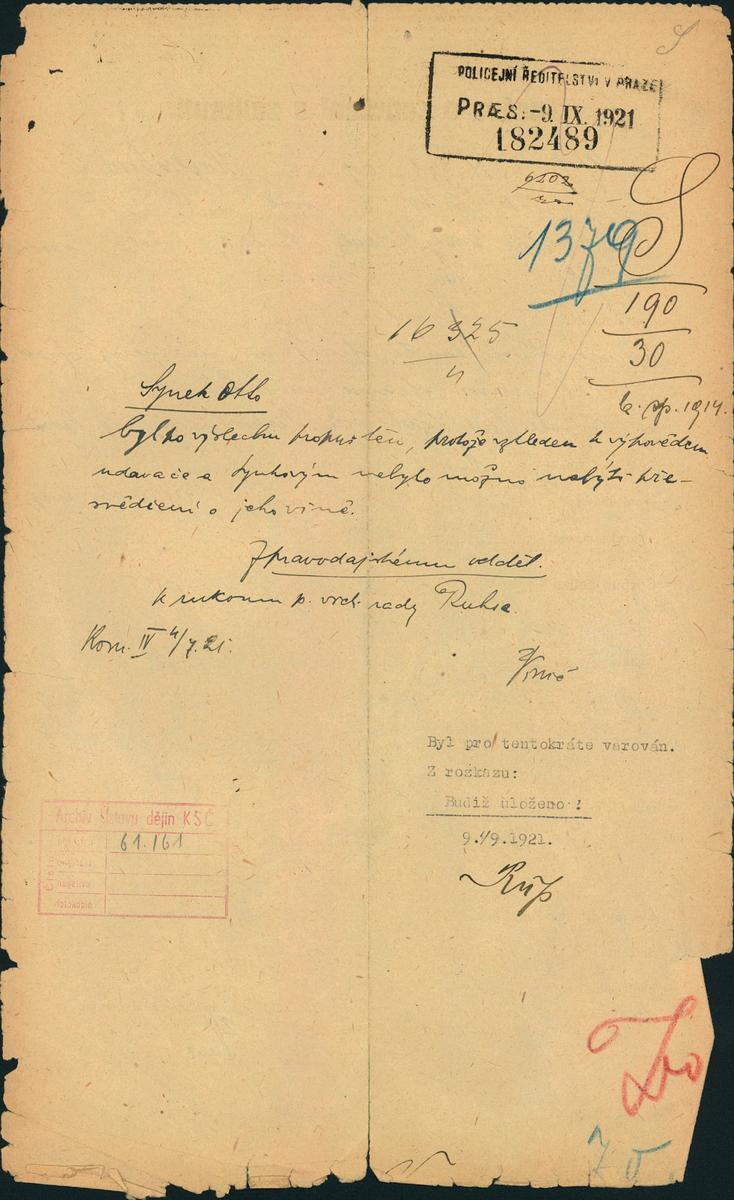 POLICEJNÍ ŘEDITELSTVÍ V PRAZE
PRÆS. -9. IX. 1921
182489
1379
S
190
30
16325
4
Synek Otto
byl po výslechu propuštěn, protože vzhledem k výpovědem
udavače a Synkovým nebylo možno nabýti pře-
svědčení o jeho vině.
Zpravodajskému odděl.
k rukoum p. vrch. rady
Kom. IV 4/7.21.
Byl pro tentokráte varován.
Z rozkazu:
Budiž uloženo!
9./9.1921.
Archiv Ústavu dějin KSČ
61.161
negativu
fotokopie